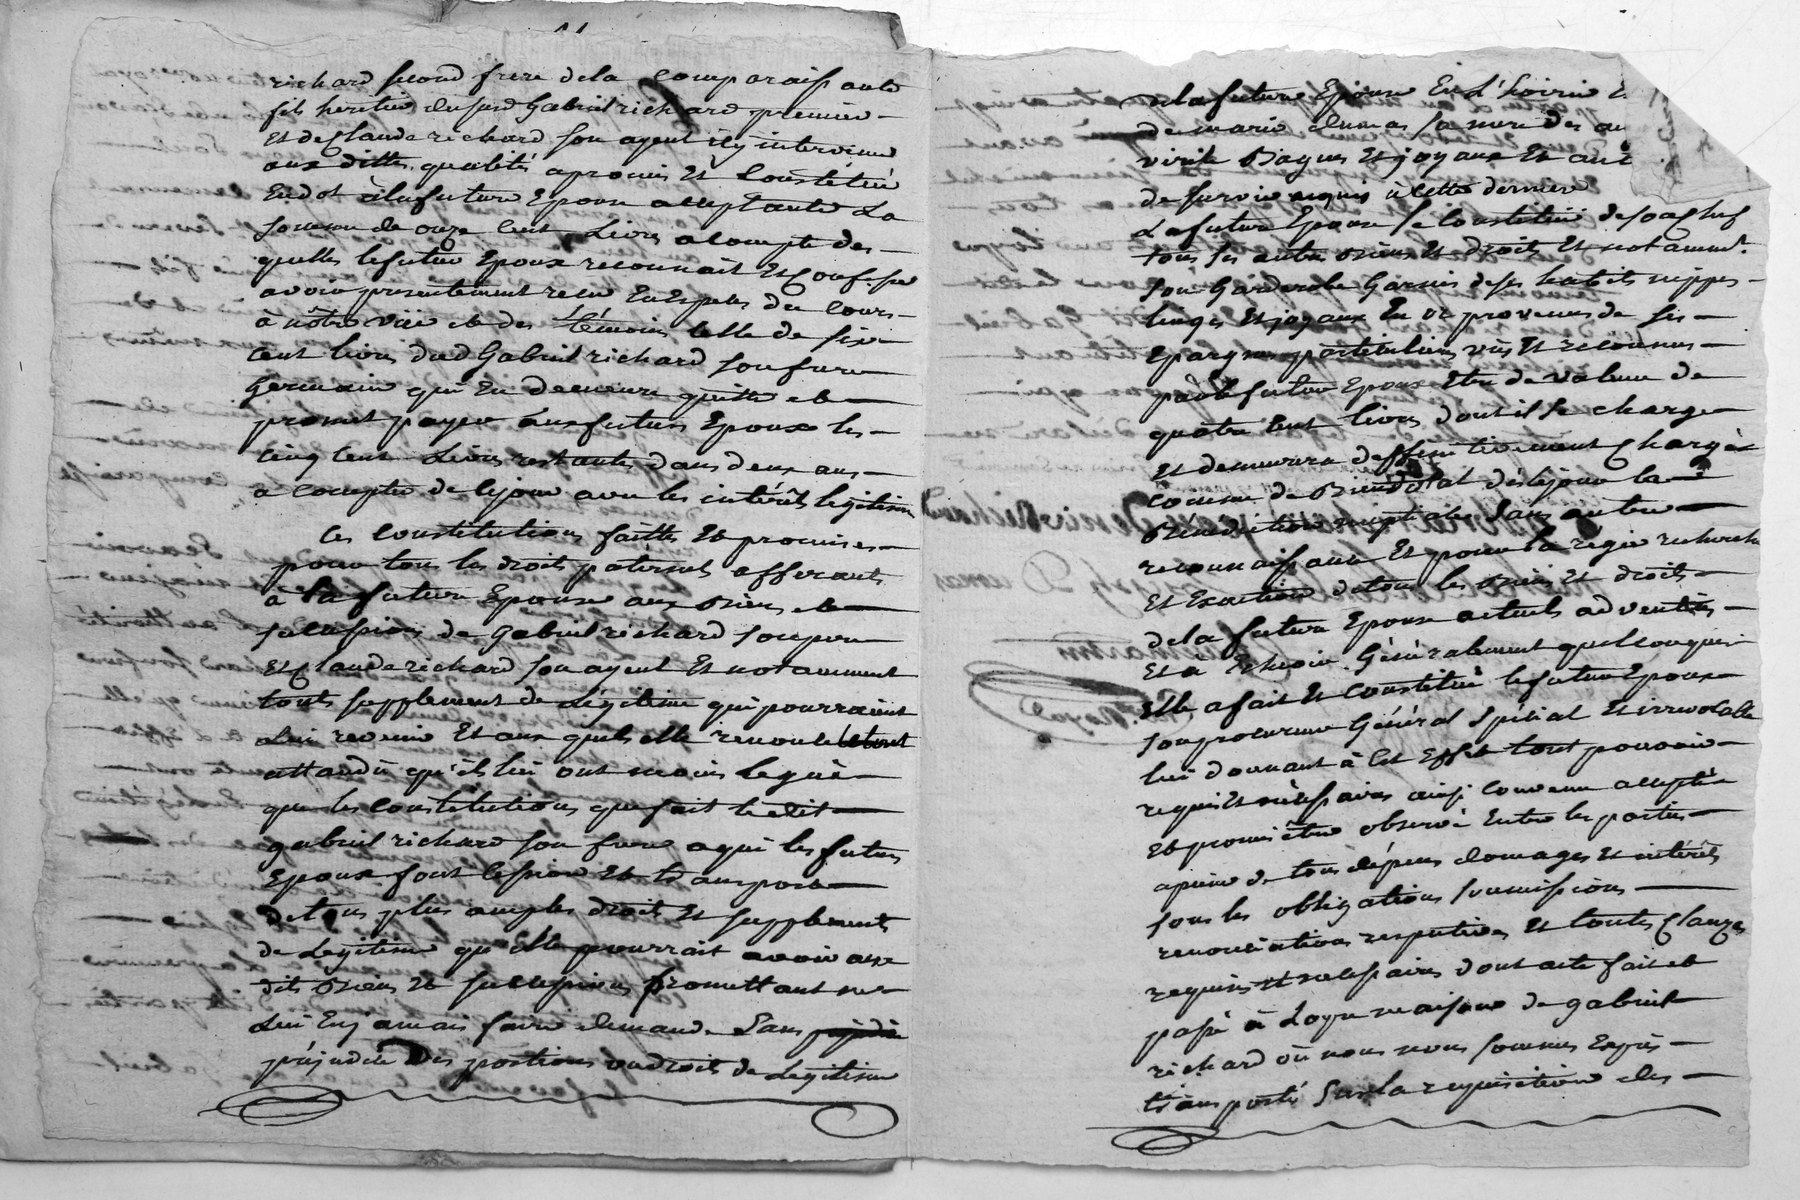 richard second frere de la comparaissante
fils heritier dusurd Gabriel richard premier
Et de Claude richard son agent icy intervenu
aux dittes qualités a promis Et Constitué
En dot à la future Epouse acceptante La
somme de onze cent Livres acompte des
quelles le futur Epoux reconnait Et Confesse
avoir presentement recu En Especes du cours
à nôtre vüe et des témoins celle de six
cent livres dud Gabriel richard son frere
Germain qui En demeure quitte et
promet payer aux futurs Epoux les
cinq cent Livres restantes dans deux ans
a compter de ce jour avec les intérêts legitimes
Ces constitutions faittes Et promises
pour tous les droits paternels afferants
à la future Epouse aux Biens et
successions de Gabriel richard son pere
Et Claude richard son agent Et notamment
tout supplement de Légitime qui pourraient
Lui revenir Et aux quels elle renonce
attandû qu'ils lui ont moins legué
que les constitutions que fait ledit
gabriel richard son frere a qui les futurs
Epoux font Cession Et transport
de tous plus amples droits Et supplement
de Legitime qu'Elle pourrait avoir aux
dits Biens Et successions promettant ne
Lui En jamais faire demande Sans
préjudice des portions ou droits de Legitime
de la future Epouse En L'hoirie
de marie dumas sa mere des
virile Bagues Et joyaux Et
de survie aquis à cette derniere
La future Epouse se Constitue de son chef
tous ses autres Biens Et droits Et notammt
son Garderobe Garnis de ses habits nippes
linges Et joyaux En or provenus de ses
Epargnes particulieres vûs Et reconnus
par le futur Epoux Etre de valeur de
quatre cent livres dont il se charge
Et demeurera deffinitivement Chargé
comme de Bien dotal dès le jour de la
Bénédiction nuptiale Sans autre
reconnaissance Et pour la régie recherche
Et Exaction de tous les Biens Et droits
de la future Epouse actuels adventifs
Et à Echeoir Généralement quelconques
Elle a fait Et Constitué le futur Epoux
son procureur Général Spécial Et irrevocable
lui donnant à Cet Effet tout pouvoir
requis Et nécessaires ainsi convenu accepté
Et promis être observé Entre les parties
a peine de tous dépens domages Et intérêts
sous les obligations soumissions
renonciations respectives Et toutes Clauzes
requises Et necessaires dont acte fait et
passé à Loyre maison de gabriel
richard où nous nous sommes Exprès
transporté Sur la requisition des